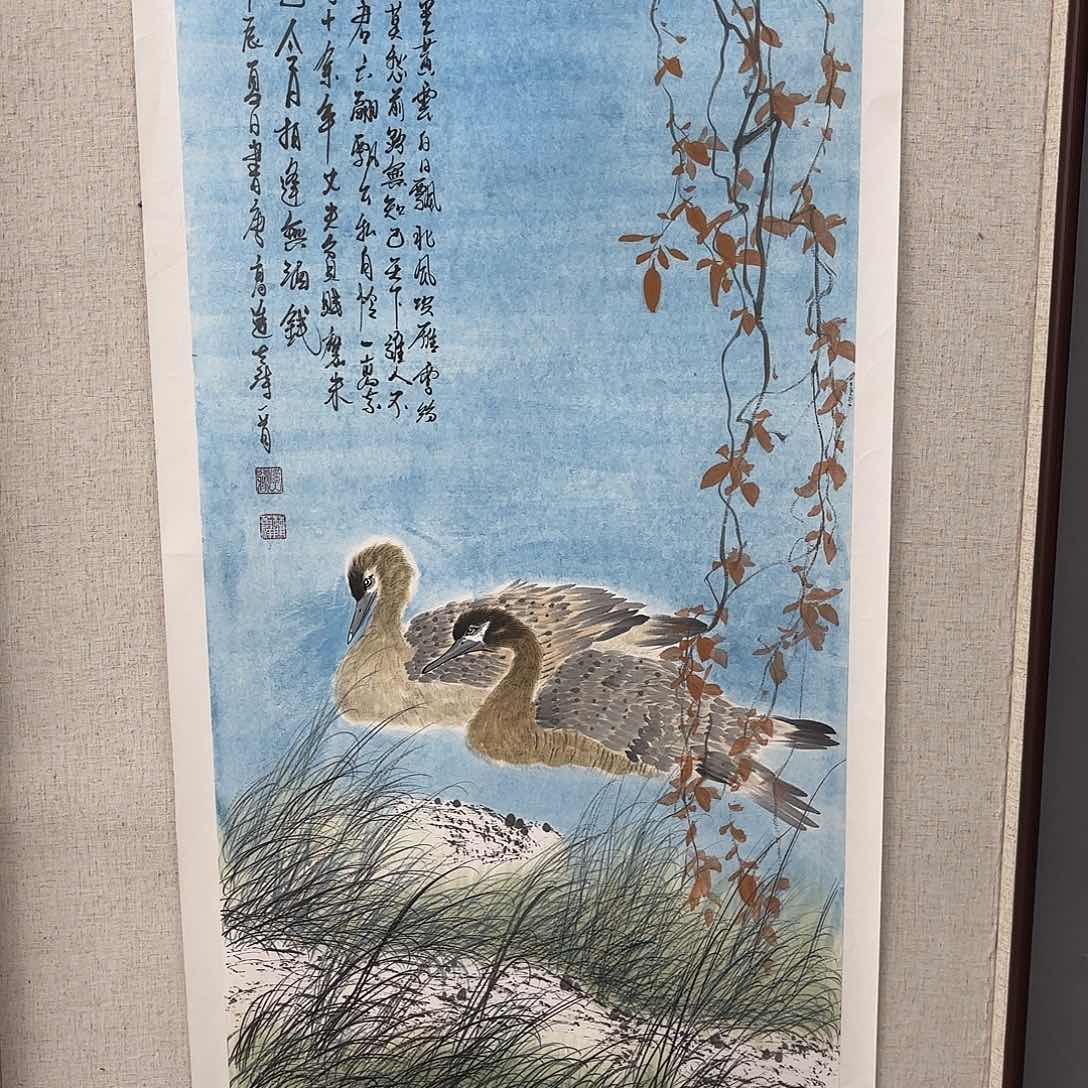 里黄雲白日飄北風吹雁雪紛
莫愁前路無知己天下誰人不
君六翮飘私自怜一离京
十余年丈夫貧賤應未
今日相逢無酒錢
辰夏日書唐高適詩一首